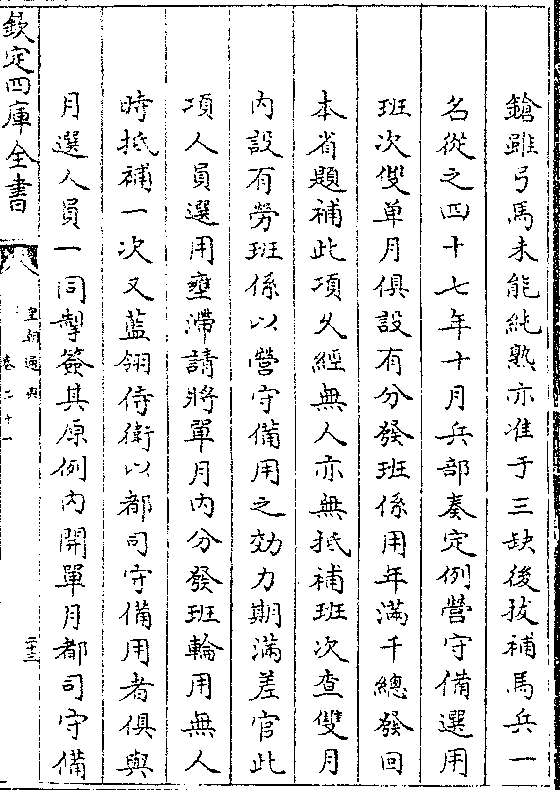 鎗雖弓馬未能純熟亦准于三缺後拔補馬兵一
名從之四十七年十月兵部奏定例營守備選用
班次雙單月俱設有分發班係用年滿千總發回
本省題補此項久經無人亦無抵補班次查雙月
內設有勞班係以營守備用之効力期滿差官此
項人員選用壅滯請將單月內分發班輪用無人
時抵補一次又藍翎侍衛以都司守備用者俱與
月選人員一同掣簽其原例內開單月都司守備
欽定四庫全書
皇朝通典
卷二十一
二十三